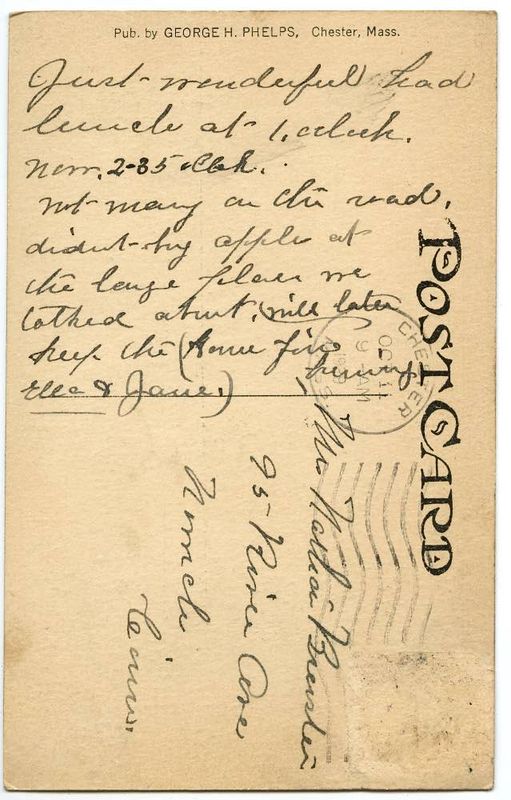 Pub. by GEORGE H. PHELPS, Chester, Mass.
Just wonderful had
lunch at 1, oclock.
now, 2-35 clok.
not many on the road,
didnt buy apples at
the large place we
talked about. will later
keep the (home fire
burning
Ella & Jane.)
POST CARD
CHESTER
OCT
9 AM
MASS
Mrs Nathan Brewster
95 River Ave
Norwich
Conn.